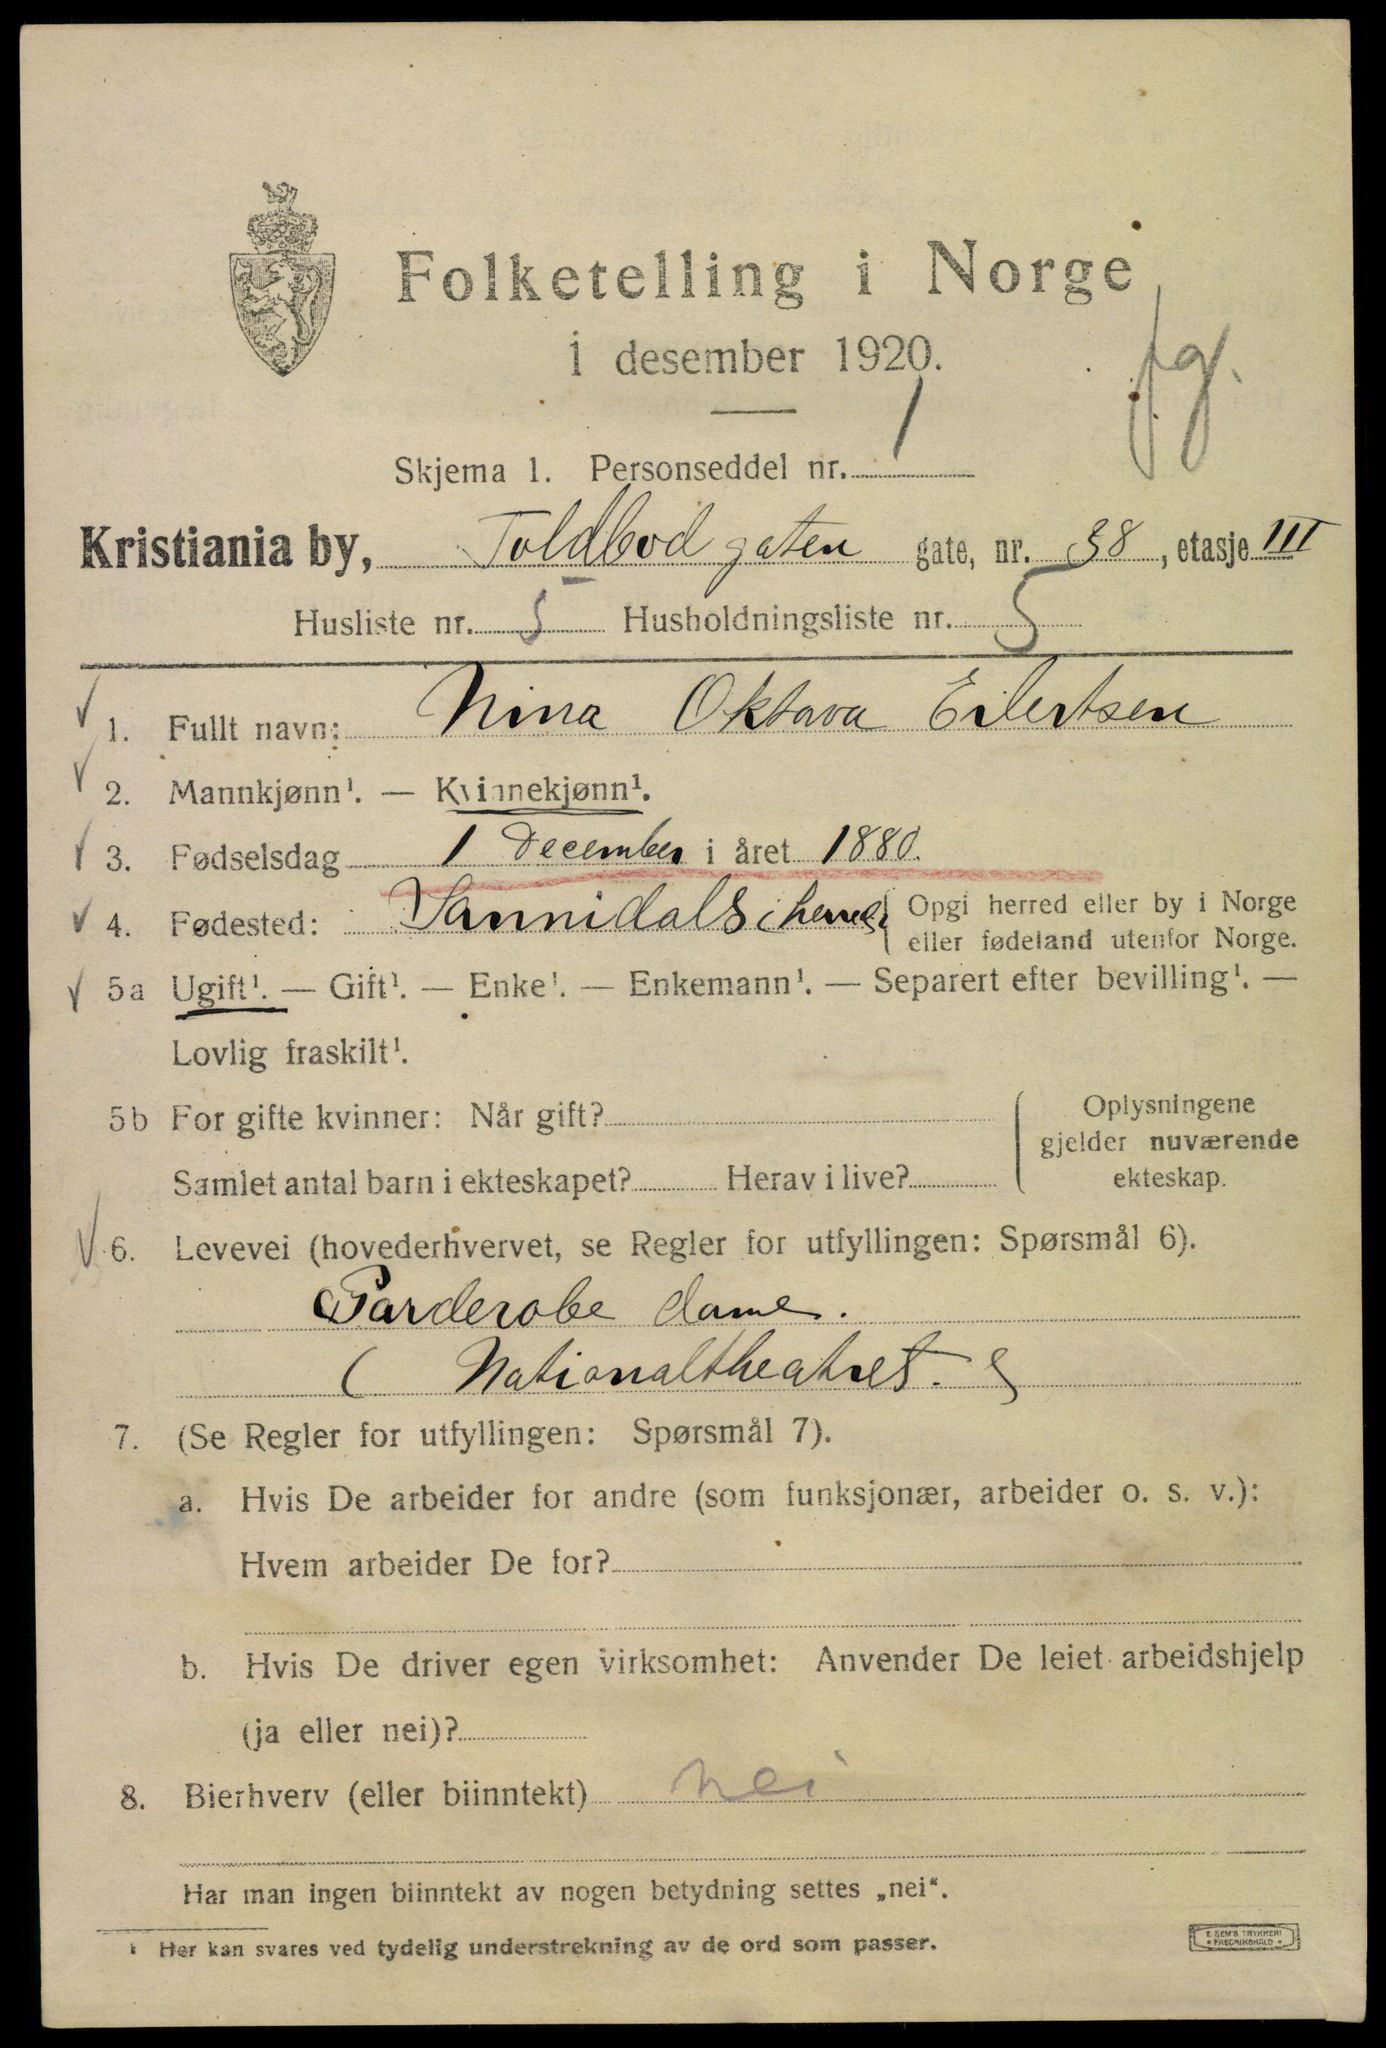 Folketelling i Norge
1 desember 1920.
fg.
Skjema 1. Personseddel nr. 1
Kristiania by, Toldbod gaten gate, nr. 38, etasje III
Husliste nr. 5 Husholdningsliste nr. 5
1. Fullt navn: Nina Oktava Eilertsen
2. Mannkjønn¹. — Kvinnekjønn¹.
3. Fødselsdag 1 December i året 1880.
4. Fødested: Sannidals herred { Opgi herred eller by i Norge
eller fødeland utenfor Norge.
5a Ugift¹. — Gift¹. — Enke¹. — Enkemann¹. — Separert efter bevilling¹. —
Lovlig fraskilt¹.
5b For gifte kvinner: Når gift?
Samlet antal barn i ekteskapet? Herav i live?
{ Oplysningene
gjelder nuværende
ekteskap.
6. Levevei (hovederhvervet, se Regler for utfyllingen: Spørsmål 6).
Garderobe dame.
( Nationaltheatret.
7. (Se Regler for utfyllingen: Spørsmål 7).
a. Hvis De arbeider for andre (som funksjonær, arbeider o. s. v.):
Hvem arbeider De for?
b. Hvis De driver egen virksomhet: Anvender De leiet arbeidshjelp
(ja eller nei)?
8. Bierhverv (eller biinntekt) nei
Har man ingen biinntekt av nogen betydning settes „nei“.
¹ Her kan svares ved tydelig understrekning av de ord som passer.
E. SEM'S TRYKKERI
• FREDRIKSHALD •